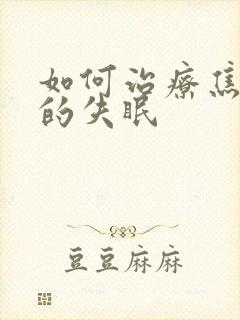 如何治疗焦
的失眠
豆豆麻麻